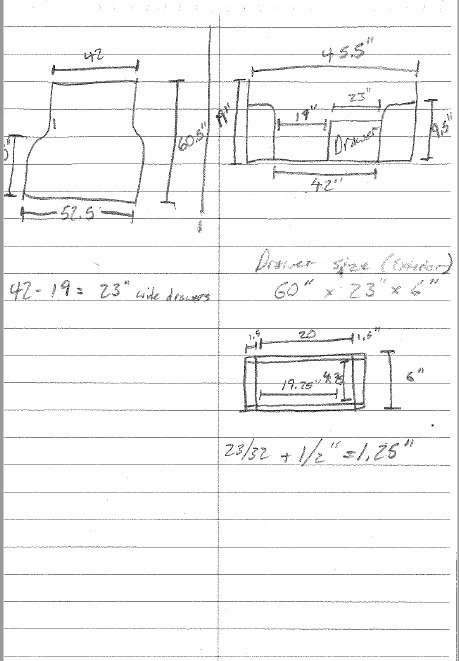 42
60.5"
52.5
45.5"
19"
23"
Drawer
9.5"
42"
42 - 19 = 23" wide drawers
Drawer size (Exterior)
60" x 23" x 6"
20
19.25"
6"
23/32 + 1/2" = 1.25"